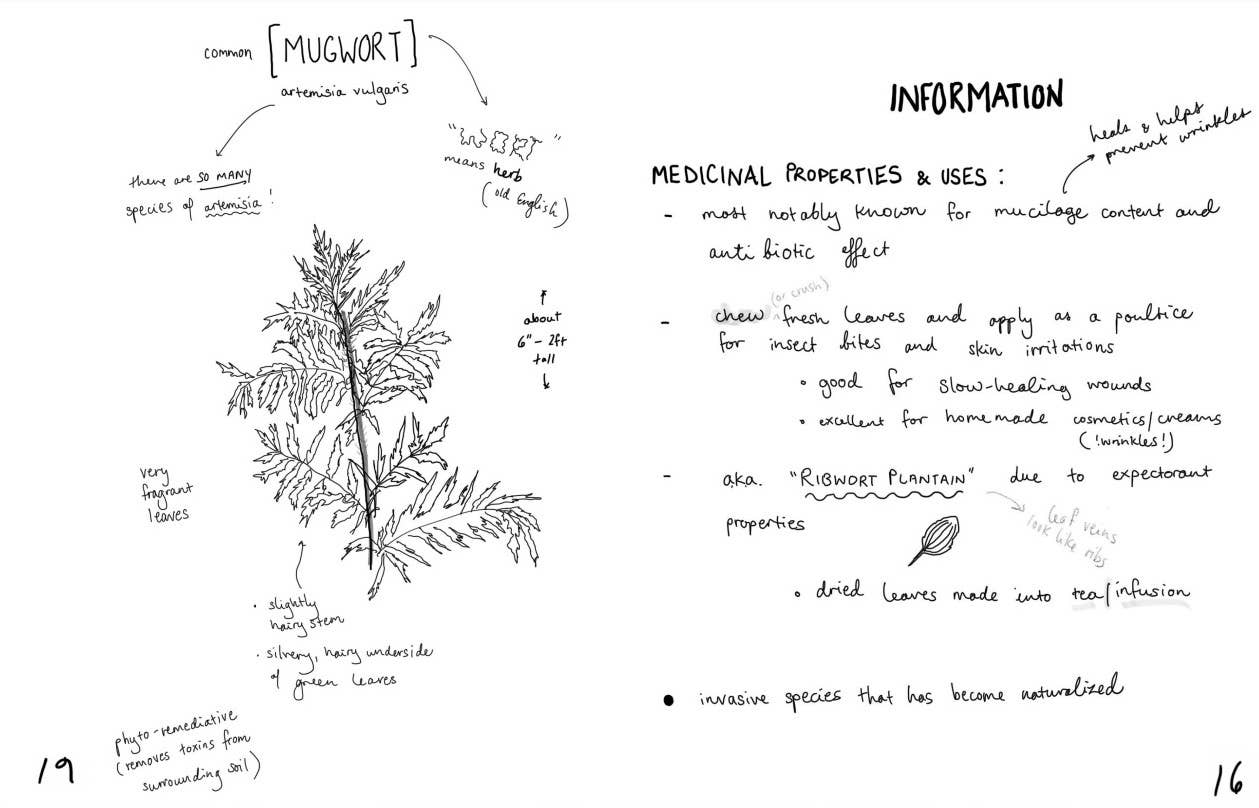 common [MUGWORT]
artemisia vulgaris
there are SO MANY
species of artemisia !
"WORT"
means herb
(old English)
↑
about
6" - 2ft
tall
↓
very
fragrant
leaves
· slightly
hairy stem
· silvery, hairy underside
of green leaves
phyto-remediative
(removes toxins from
surrounding soil)
19
INFORMATION
heals & helps
prevent wrinkles
MEDICINAL PROPERTIES & USES :
- most notably known for mucilage content and
anti biotic effect
(or crush)
- chew ^ fresh leaves and apply as a poultice
for insect bites and skin irritations
• good for slow-healing wounds
• excellent for homemade cosmetics/creams
(!wrinkles!)
- a.k.a. "RIBWORT PLANTAIN" due to expectorant
properties
leaf veins
look like ribs
• dried leaves made into tea/infusion
• invasive species that has become naturalized
16